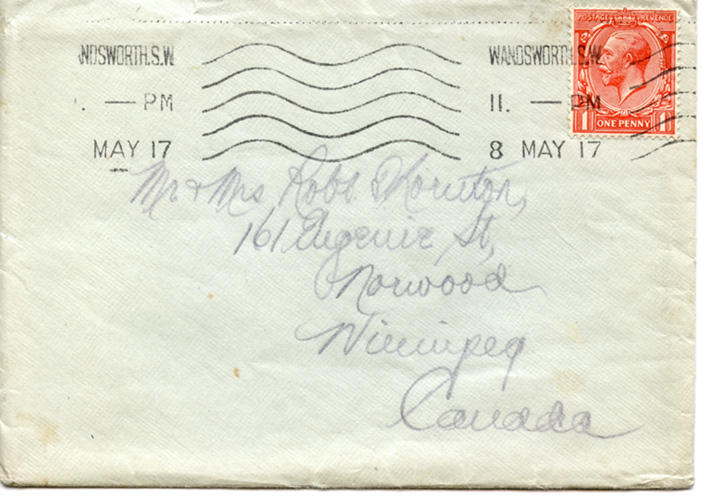 NDSWORTH.S.W. WANDSWORTH.S.W.
POSTAGE REVENUE
. — PM 11. — PM
1 ONE PENNY 1
MAY 17 8 MAY 17
Mr & Mrs Robt Thornton,
161 Eugenie St,
Norwood
Winnipeg
Canada